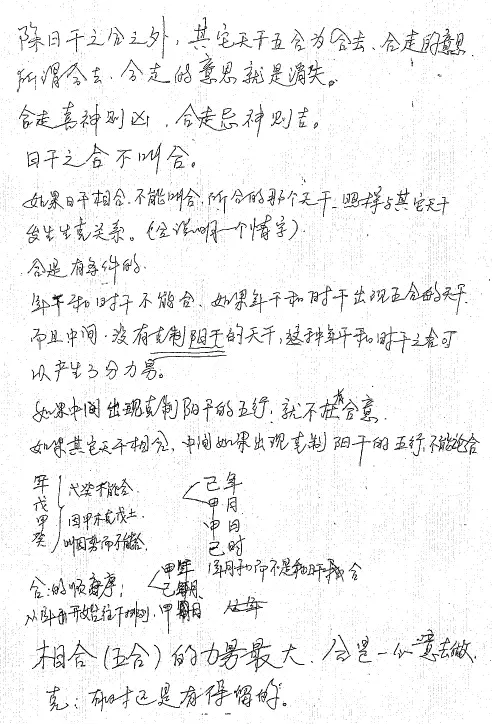 除日干之合之外，其它天干五合为合去、合走的意思
所谓合去、合走的意思就是消失。
合走喜神则凶，合走忌神则吉。
日干之合不叫合。
如果日干相合，不能叫合，所合的那个天干，照样与其它天干
发生生克关系。(仅说明一个情字)
合是有条件的
年干和时干不能合，如果年干和时干出现五合的天干
而且中间没有克制阳干的天干，这种年干和时干之合可
以产生3分力量。
如果中间出现克制阳干的五行，就不存合意
如果其它天干相合，中间如果出现克制阳干的五行，不能论合
年 戊癸不能合 己年
戊 因甲木克戊土 甲月
甲 叫因势而不能合 甲日
癸 己时
合的顺序： 甲年 己月 甲日
从年开始往下排列
相合(五合)的力量最大，合是一心一意去做
克：有时还是有保留的。